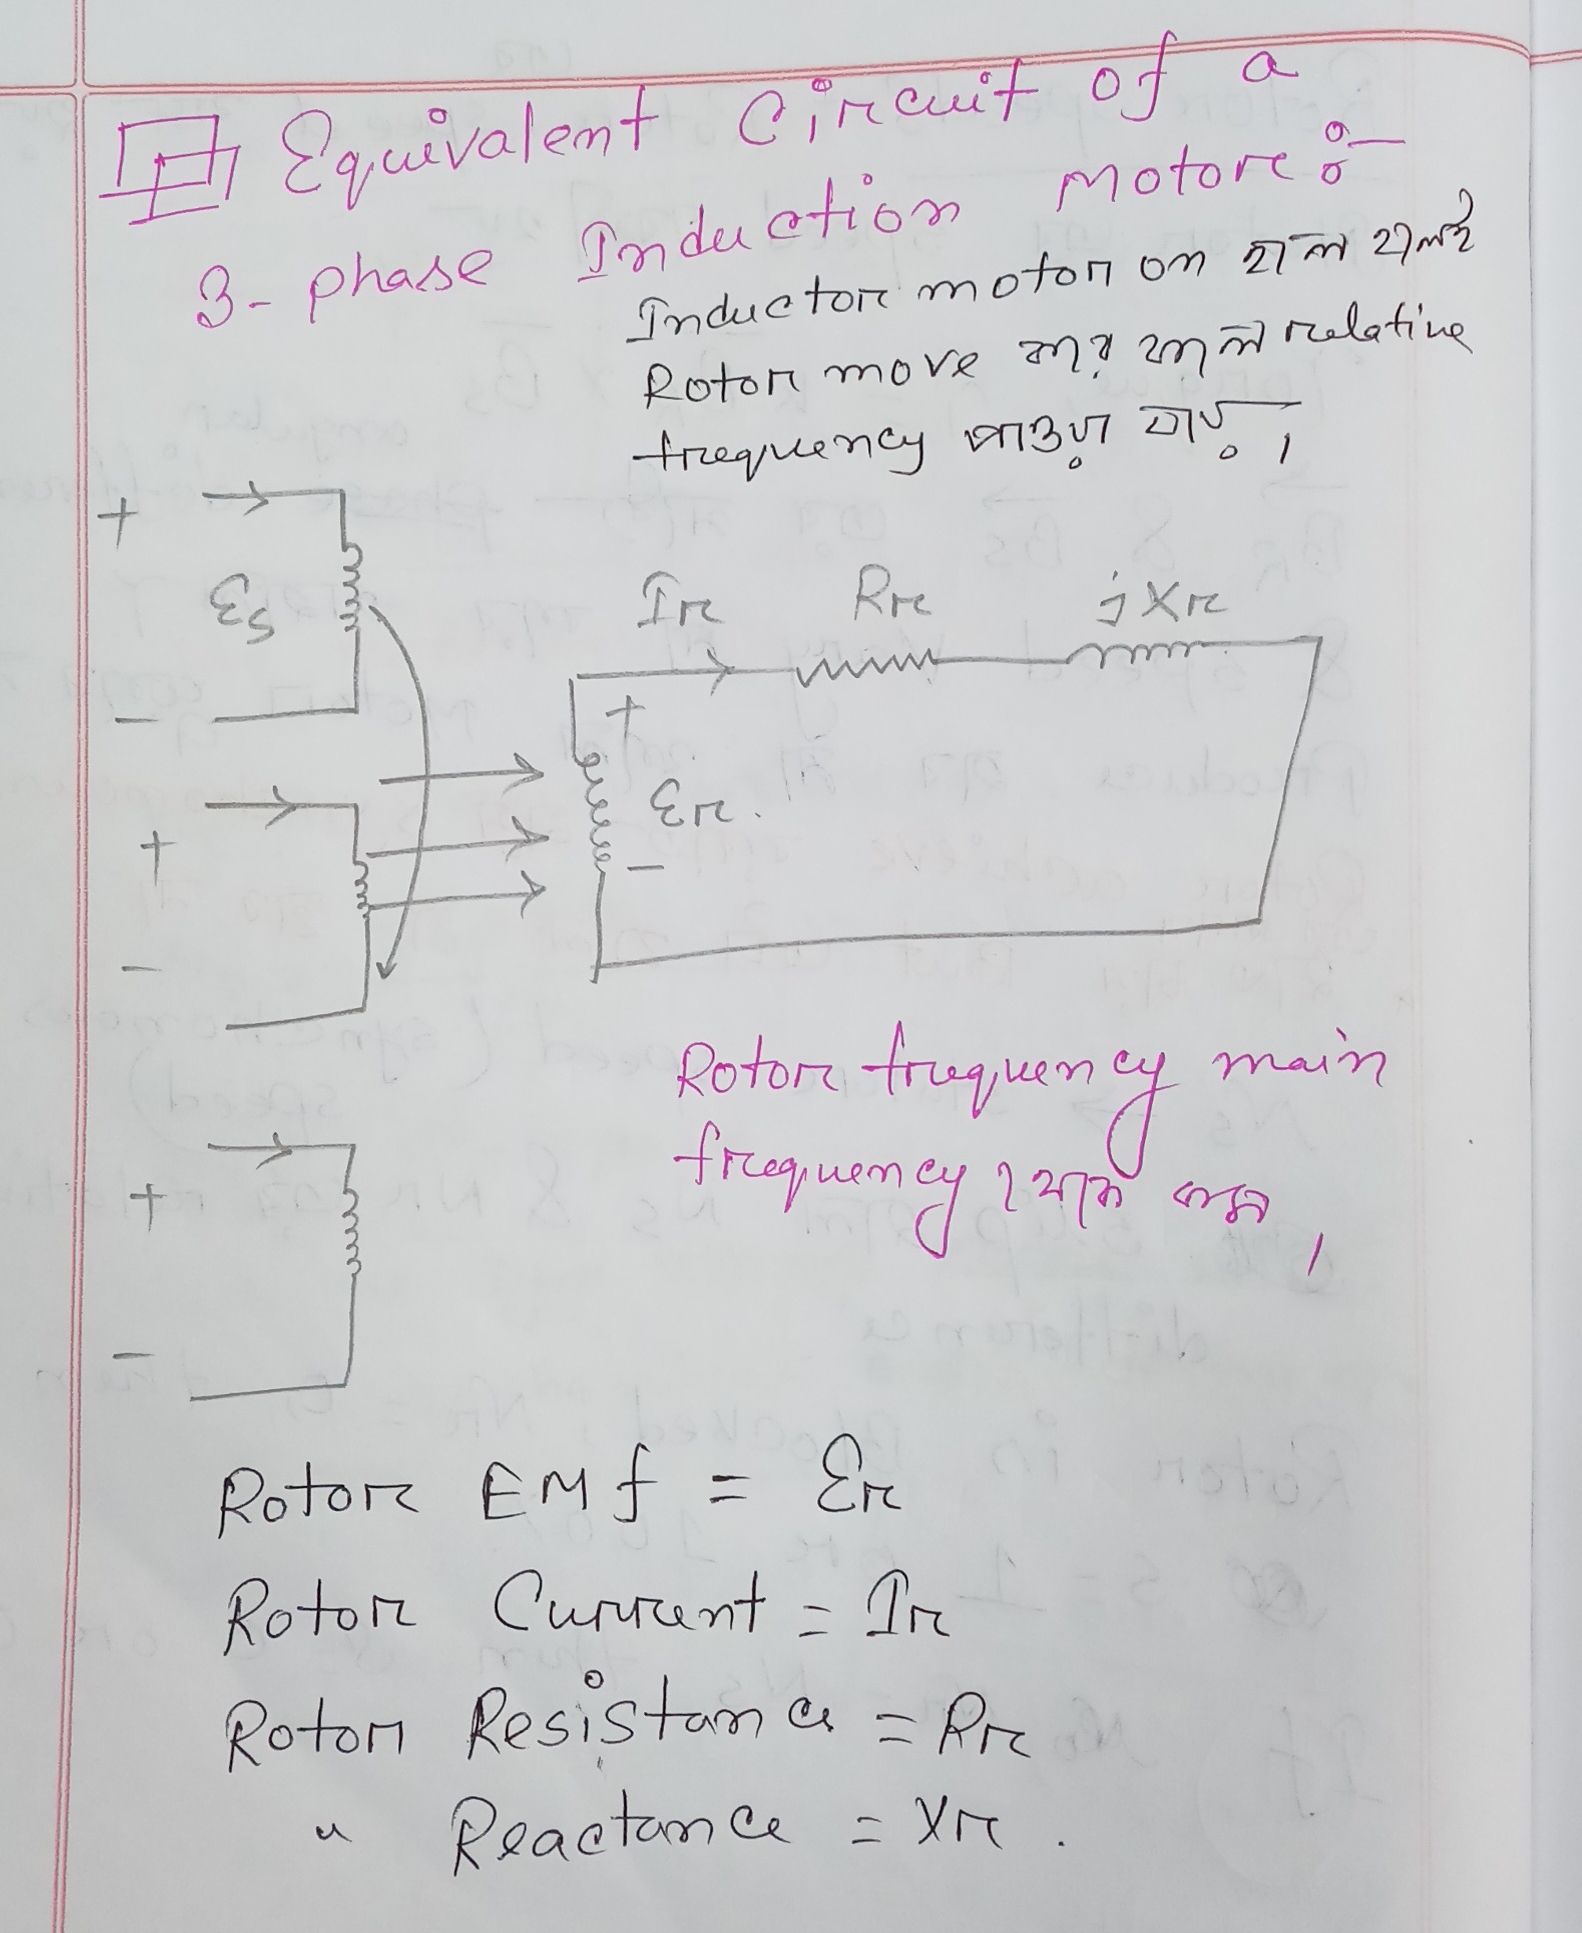 Equivalent Circuit of a
3-phase Induction Motor :-
Inductor motor on হলে হলেই
Rotor move করে ফলে relative
frequency পাওয়া যায়।
+
E₃
-
+
-
+
-
Ir Rr jXr
+
Er.
-
Rotor frequency main
frequency থেকে কম।
Rotor EMf = Er
Rotor Current = Ir
Rotor Resistance = Rr
" Reactance = Xr.